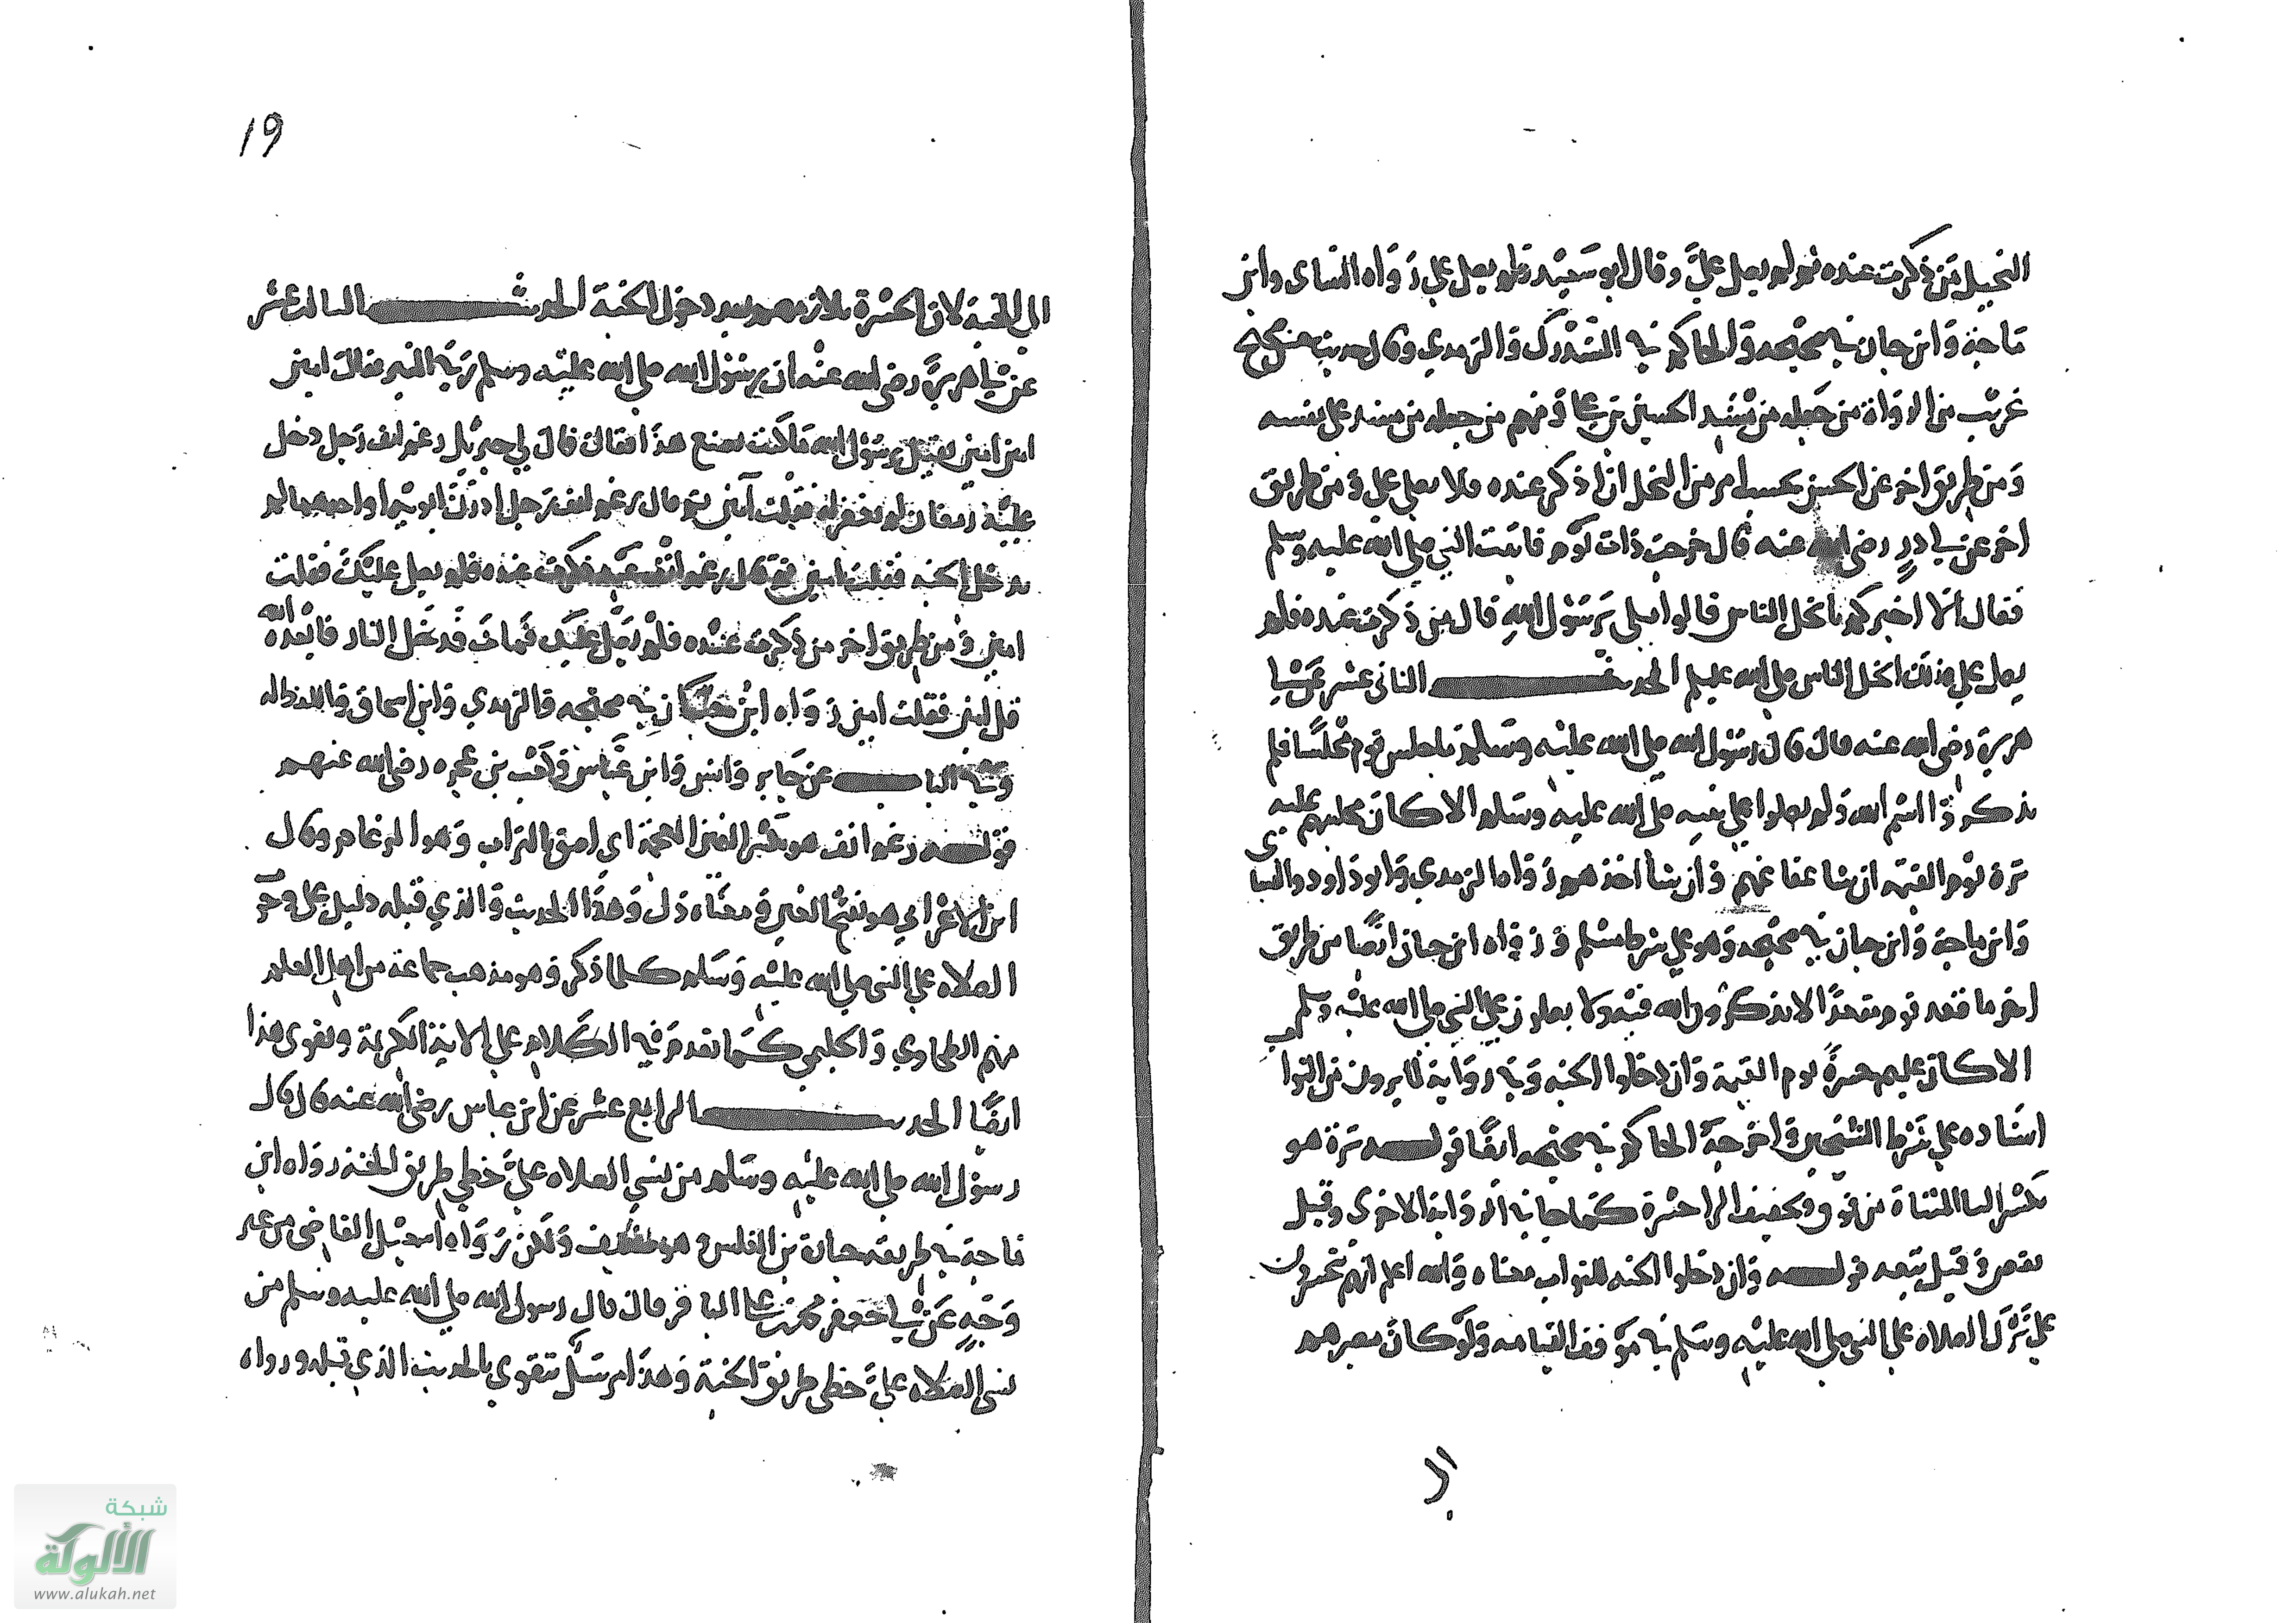 البخيل من ذكرت عنده ثم لم يصل علي وقال ابو سعيد فلم يصل علي رواه النساى وابن
ماجة وابن حبان في صحيحه والحاكم في المستدرك والترمدي وقال حديث حسن صحيح
غريب من الرواة من جعله من مسند الحسين بن علي ومنهم من جعله من مسند علي نفسه
ومن طريق اخر عن الحسن بحسب امرء من البخل ان اذكر عنده فلا يصلي علي ومن طريق
اخر عن ابي ذر رضى الله عنه قال خرجت ذات يوم فاتيت النبي صلى الله عليه وسلم
فقال الا اخبركم بابخل الناس قالوا بلى يرسول الله قال من ذكرت عنده فلم
يصل علي فذلك ابخل الناس صلى الله عليه وسلم الحديث الثانى عشر عن ابي
هريرة رضى الله عنه قال قال رسول الله صلى الله عليه وسلم ما جلس قوم مجلسا فلم
يذكروا اسم الله ولم يصلوا على نبيه صلى الله عليه وسلم الا كان مجلسهم عليهم
ترة يوم القيمه ان شا عفا عنهم وان شا اخذهم رواه الترمدي وابو داود والنسا ى
وابن ماجة وابن حبان في صحيحه وهو على شرط مسلم ورواه ابن حبان ايضا من طريق
اخر ما قعد قوم مقعدا لا يذكرون الله فيه ولا يصلون على النبي صلى الله عليه وسلم
الا كان عليهم حسرة يوم القيمة وان دخلوا الجنه وفي رواية لما يرون من الثواب
اسناده على شرط الشيخين واخرجه الحاكم في صحيحه ايضا قوله ترة هو
بكسر التا المثناة من فوق وتخفيف الرا حسرة كما جا في الرواية الاخرى وقيل
نقص وقيل تبعه قوله وان دخلوا الجنه للثواب معناه والله اعلم انهم يتحسرون
على ترك الصلاه على النبي صلى الله عليه وسلم في موقف القيامه ولو كان مصيرهم
الى
١٩
الى الجنة لان الحسرة تلازمهم بعد دخول الجنة الحديث الثالث عشر
عن ابي هريرة رضى الله عنه ان رسول الله صلى الله عليه وسلم رقي المنبر فقال امين
امين امين فقيل يرسول الله ما كنت تصنع هذا فقال قال لي جبريل رغم انف رجل دخل
عليه رمضان لم يغفر له فقلت آمين ثم قال رغم انف رجل ادرك ابويه او احدهما لم
يدخل الجنه فقلت امين ثم قال رغم انف عبد ذكرت عنده فلم يصل عليك فقلت
امين ومن طريق اخر من ذكرت عنده فلم يصل عليك فمات فدخل النار فابعده الله
قل امين فقلت امين رواه ابن حبان في صحيحه والترمدي وابن اسحاق واللفظ له
وفي الباب عن جابر وانس وابن عباس وكعب بن عجره رضى الله عنهم
قوله رغم انف هو بكسر الغين المعجمة اى لصق بالتراب وهو الرغام وقال
ابن الاعرابي هو بفتح الغين ومعناه ذل وهذا الحديث والذي قبله دليل على وجوب
الصلاه على النبي صلى الله عليه وسلم كلما ذكر وهو مذهب جماعة من اهل العلم
منهم الطحاوي والحليمي كما تقدم في الكلام على الاية الكريمة ويقوى هذا
ايضا الحديث الرابع عشر عن ابن عباس رضى الله عنه قال قال
رسول الله صلى الله عليه وسلم من نسي الصلاه علي خطي طريق الجنة رواه ابن
ماجة في طريقه جبارة بن المغلس وهو ضعيف ولكن رواه اسمعيل القاضى من غير
وجه عن ابي جعفر محمد بن علي الباقر قال قال رسول الله صلى الله عليه وسلم من
نسي الصلاه علي خطي طريق الجنة وهذا مرسل يتقوى بالحديث الذي قبله ورواه
شبكة
الألوكة
www.alukah.net